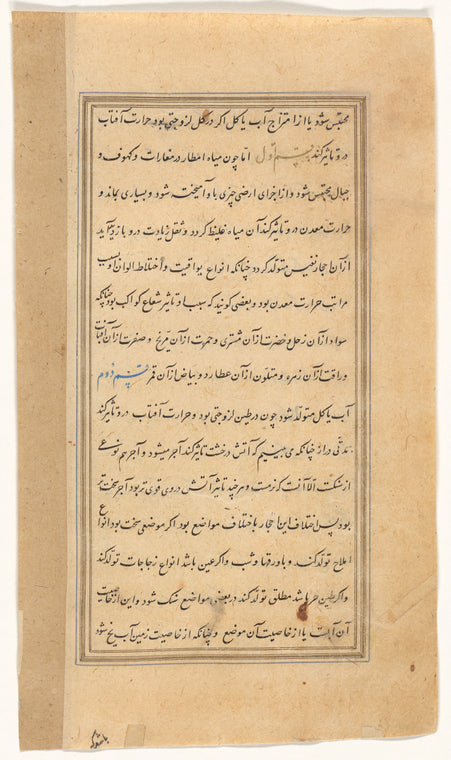 محتبس شود یا از امتزاج آب یا کل اکر در کل لزوجتی بود حرارت آفتاب
درو تاثیر کند قسم اول اما چون میاه امطار در مغارات و کهوف و
جبال محتبس شود و از اجزای ارضی چیزی با او آمیخته شود و بسیاری بماند و
حرارت معدن درو تاثیر کند آن میاه غلیظ کردد و ثقل زیادت درو بازدید آید
از آن احجار نفیس متولد کردد چنانکه انواع یواقیت و اختلاط الوان او بسبب
مراتب حرارت معدن بود و بعضی کویند که سبب او تاثیر شعاع کواکب بود چنانکه
سواد از آن زحل و خضرت از آن مشتری و حمرت از آن مریخ و صفرت از آن آفتاب
و زرقت از آن زهره و متلون از آن عطارد و بیاض از آن قمر قسم دوم
آب یا کل متولد شود چون در طین لزوجتی بود و حرارت آفتاب درو تاثیر کند
بمدتی دراز چنانکه می بینیم که آتش در خشت تاثیر کند آجر میشود و آجر هم نوعی
از سنکست الا آنست که نرمست و هر چند تاثیر آتش در وی قوی تر بود آجر سخت تر
بود پس اختلاف این احجار باختلاف مواضع بود اکر موضعی سخت بود انواع
املاح تولد کند و باورقها و شب واکر عین باشد انواع زجاجات تولد کند
واکر طین حر باشد مطلق تولد کند در بعضی مواضع سنک شود و این از خاصیت
آن آبست یا از خاصیت آن موضع و چنانکه از خاصیت زمین آب یخ شود